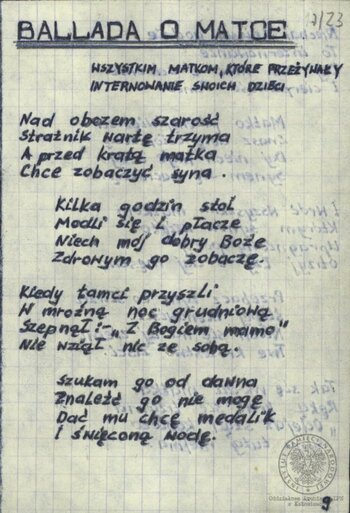 7/23
BALLADA O MATCE
WSZYSTKIM MATKOM, KTÓRE PRZEŻYWAŁY
INTERNOWANIE SWOICH DZIECI
Nad obozem szarość
Strażnik wartę trzyma
A przed kratą matka
Chce zobaczyć syna.
Kilka godzin stoi
Modli się i płacze
Niech mój dobry Boże
Zdrowym go zobaczę.
Kiedy tamci przyszli
W mroźną noc grudniową
Szepnął:-„Z Bogiem mamo"
Nie wziął nic ze sobą.
Szukam go od dawna
Znaleźć go nie mogę
Dać mu chcę medalik
I święconą wodę.
INSTYTUT PAMIĘCI NARODOWEJ
Oddziałowe Archiwum IPN
w Katowicach
9